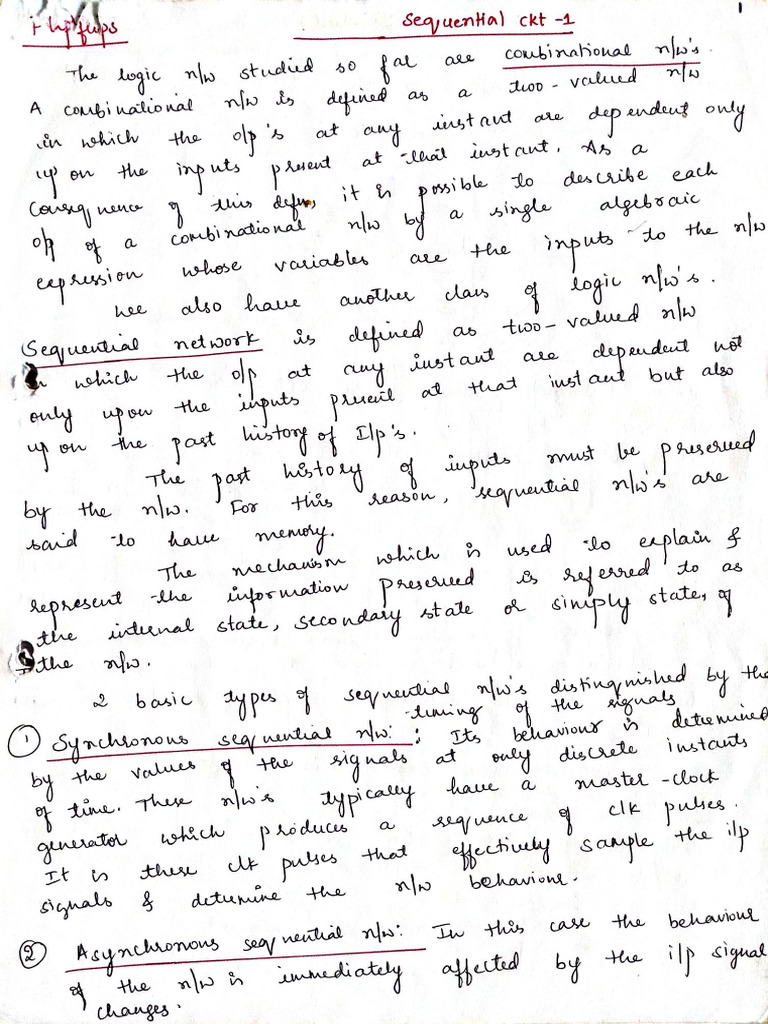 Flip flops
Sequential ckt -1
1
The logic n/w studied so far are combinational n/w's.
A combinational n/w is defined as a two-valued n/w
in which the o/p's at any instant are dependent only
upon the inputs present at that instant. As a
consequence of this defn, it is possible to describe each
o/p of a combinational n/w by a single algebraic
expression whose variables are the inputs to the n/w
We also have another class of logic n/w's.
Sequential network is defined as two-valued n/w
in which the o/p at any instant are dependent not
only upon the inputs present at that instant but also
upon the past history of I/p's.
The past history of inputs must be preserved
by the n/w. For this reason, sequential n/w's are
said to have memory.
The mechanism which is used to explain &
represent the information preserved is referred to as
the internal state, secondary state or simply state, of
the n/w.
2 basic types of sequential n/w's distinguished by the
timing of the signals
① Synchronous sequential n/w: : Its behaviour is determined
by the values of the signals at only discrete instants
of time. These n/w's typically have a master-clock
generator which produces a sequence of clk pulses.
It is these clk pulses that effectively sample the i/p
signals & determine the n/w behaviour.
② Asynchronous sequential n/w: In this case the behaviour
of the n/w is immediately affected by the i/p signal
changes.